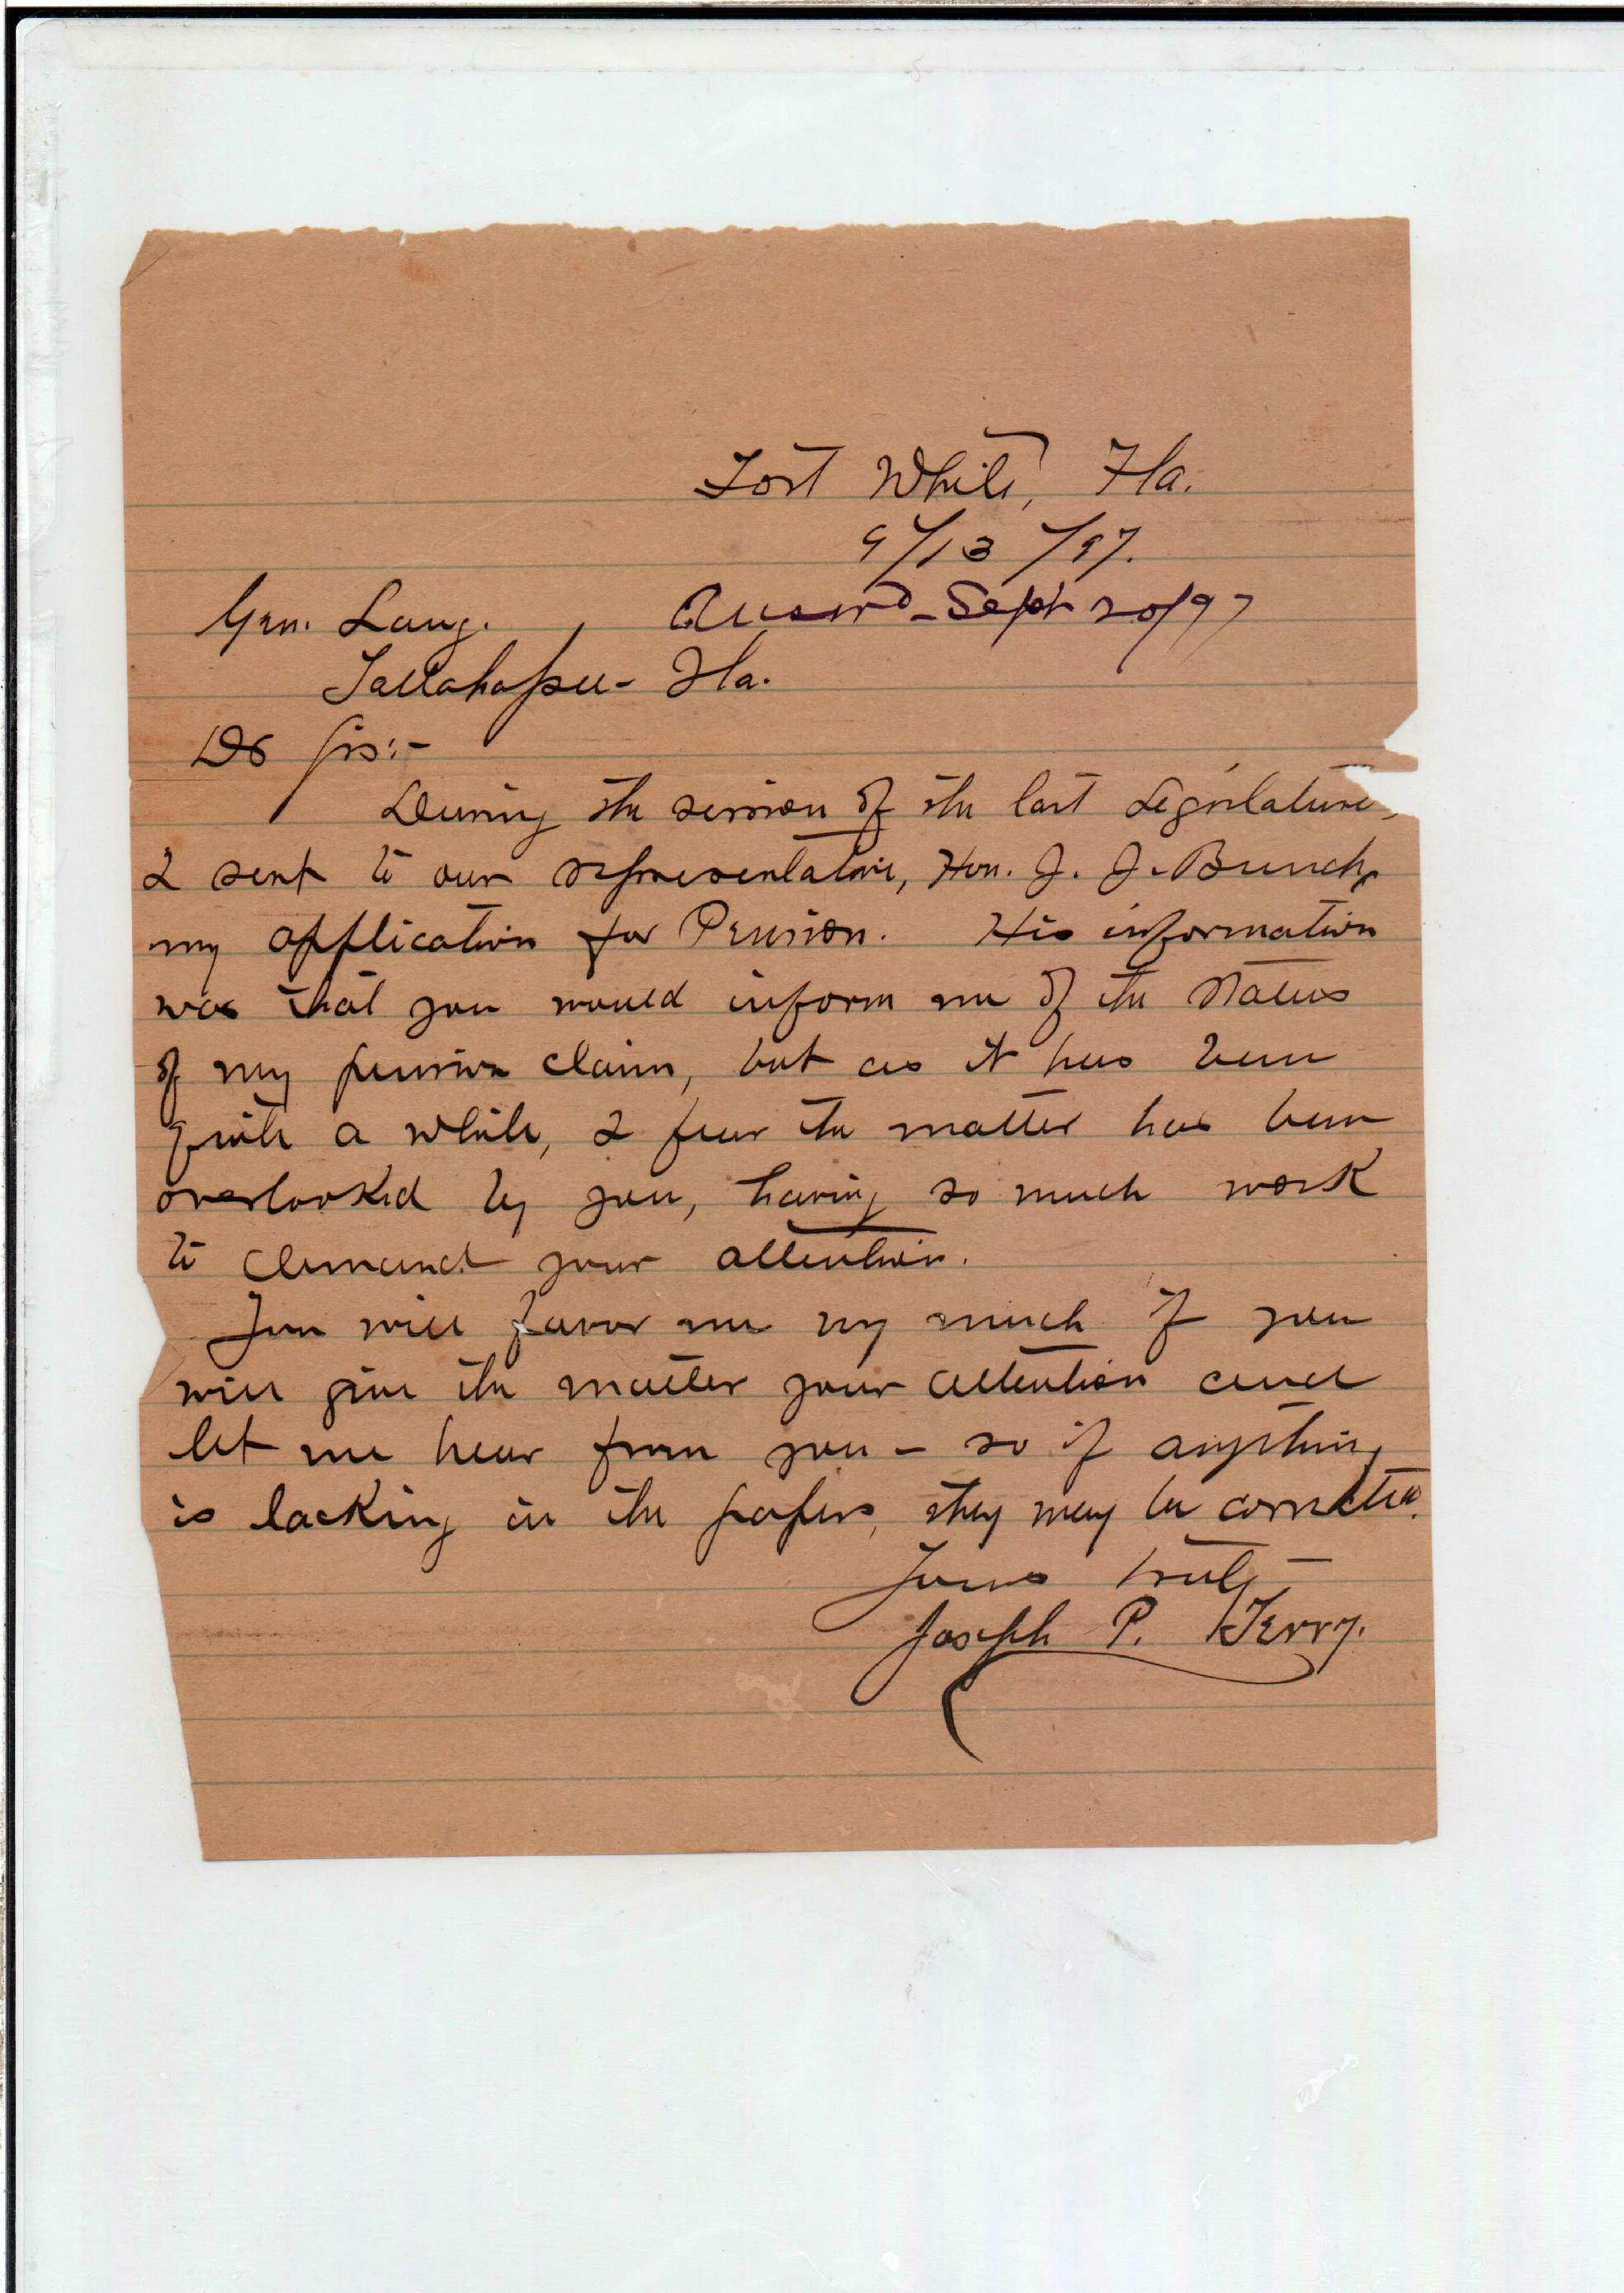 Fort White, Fla.
9/13/97.
Gen. Lang. Answrd - Sept 20/97
Tallahassee - Fla.
Dr Sir:-
During the session of the last Legislature,
I sent to our representative, Hon. J. J. Bunch,
my application for Pension. His information
was that you would inform me of the status
of my pension claim, but as it has been
quite a while, I fear the matter has been
overlooked by you, having so much work
to demand your attention.
You will favor me very much if you
will give the matter your attention and
let me hear from you - so if anything
is lacking in the papers, they may be corrected.
Yours truly -
Joseph P. Terry.